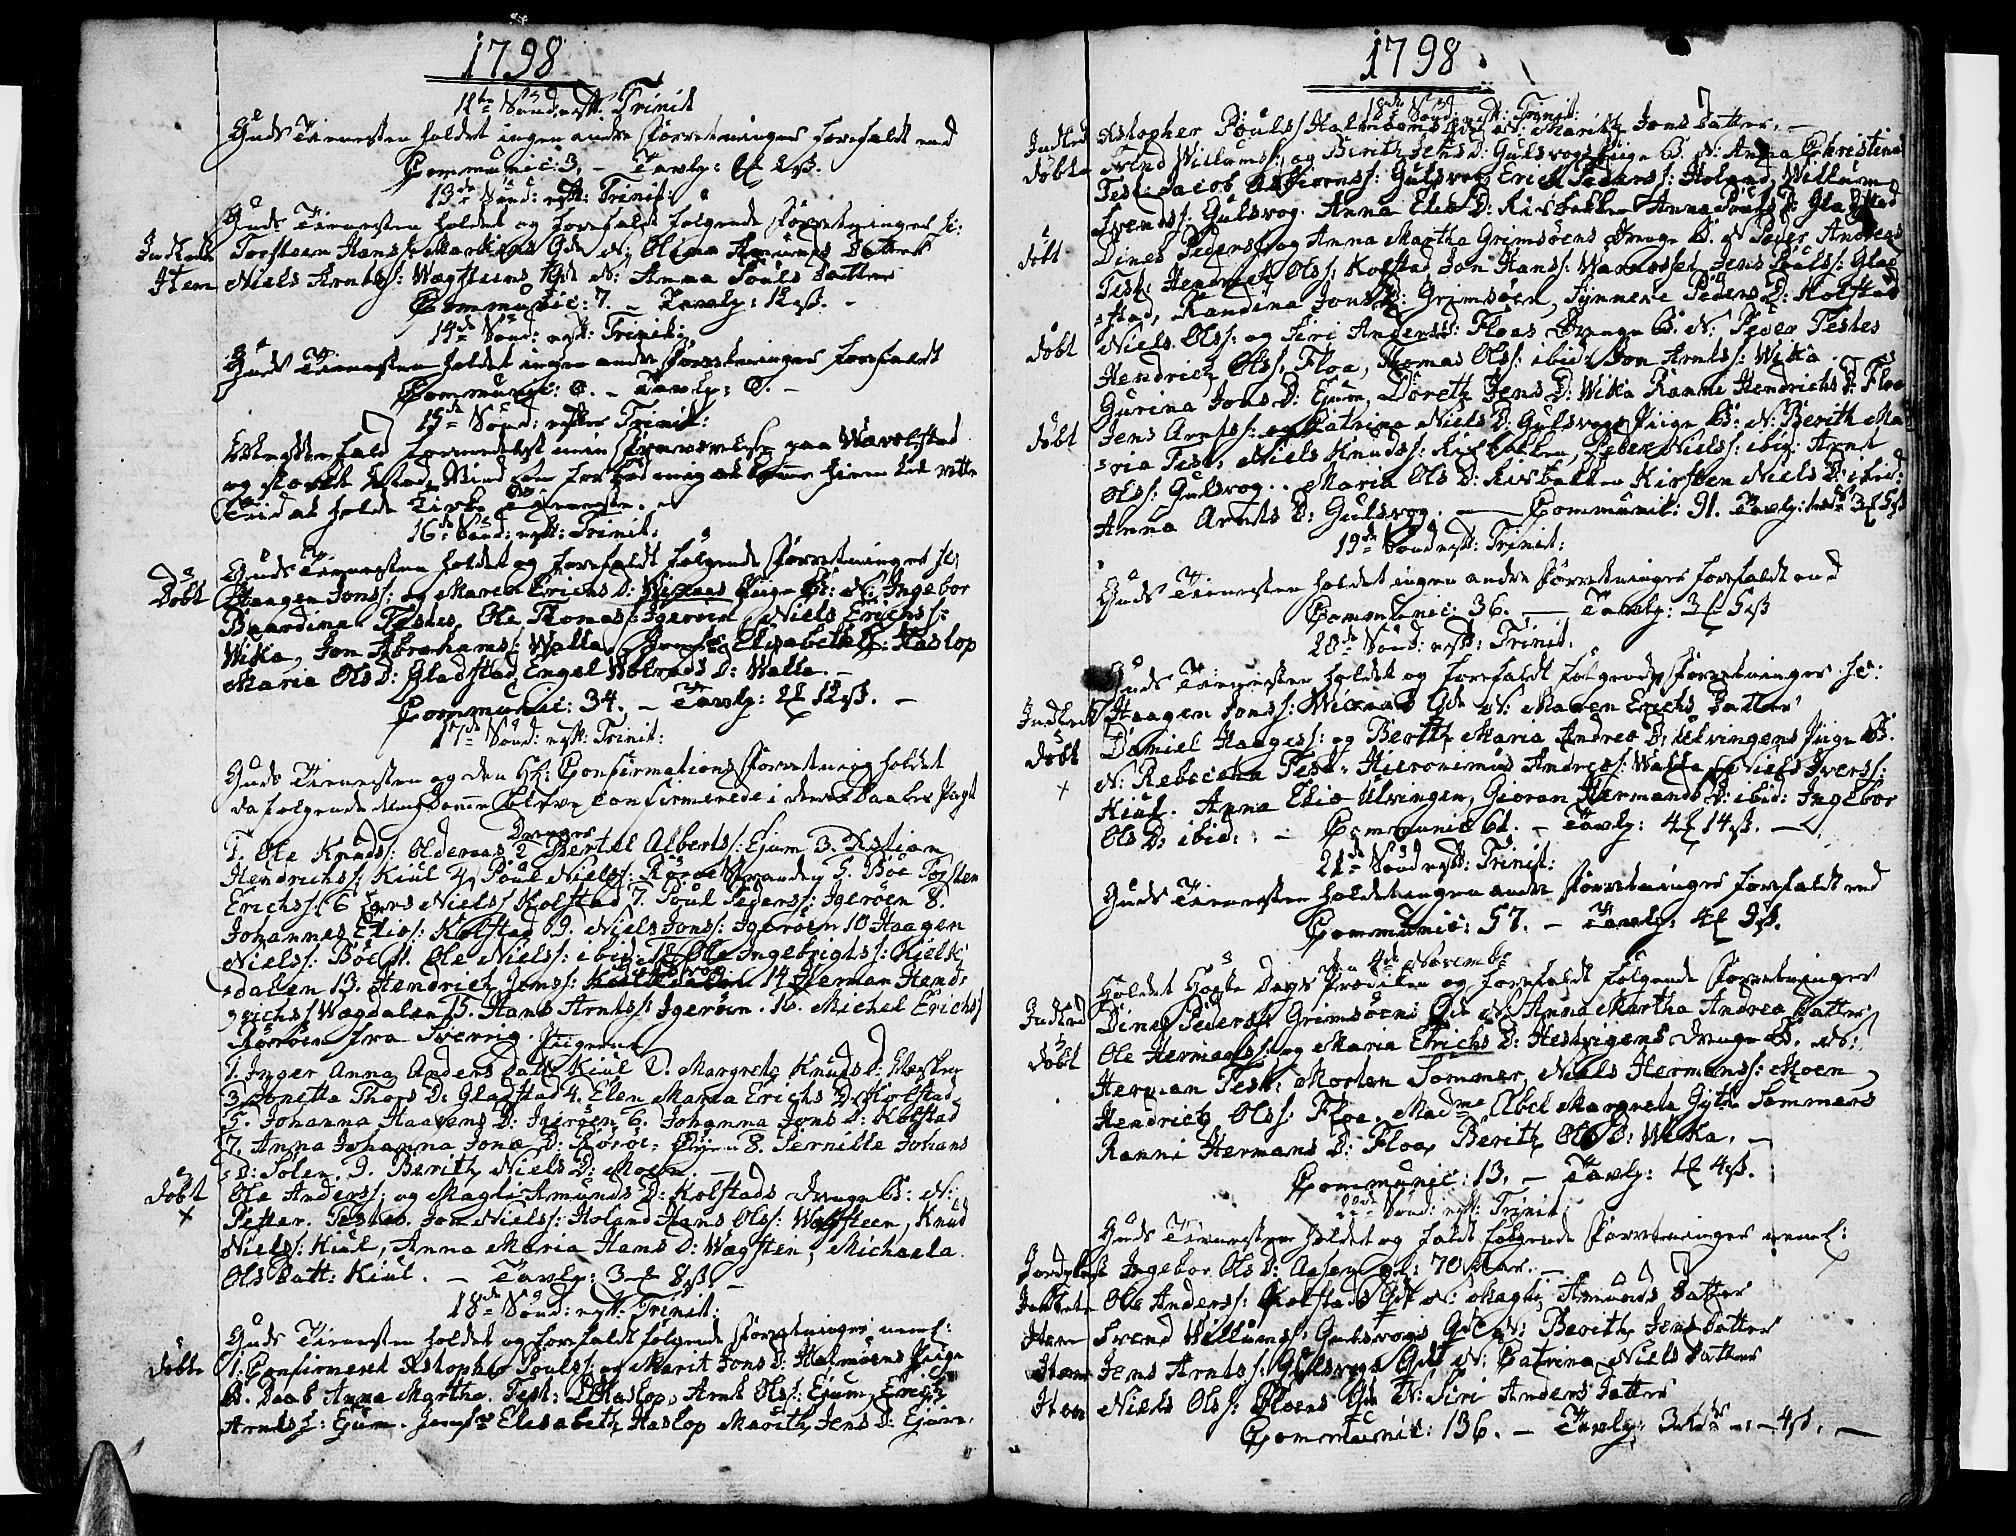 1798
12te Sønd: efft: Trinit
Guds Tienesten holdet ingen andre Forretninger forefaldt end
Communic: 3. — Tavlp:
13de Sønd: efft: Trinit:
Guds Tienesten holdet og forefaldt følgende Forretninger sc:
Indledt Torsteen Hans: Markens Qde N: Olina Amunds Datter
Item Niels Arnts: Wægsteens Qde N: Anna Pouls Datter
Communic: 7. — Tavlp: 12 ß. —
14de Sønd: efft: Trinit:
Guds Tienesten holdet ingen andre Forretninger forefaldt
Communic: 0. — Tavlp: 0. —
15de Sønd: efter Trinit:
formedelst min Fraværelse paa
og stærk Mod Vind som forbød mig at komme hiem til rette
Tiid at holde Kirke Tieneste.
16de Sønd: efft: Trinit:
Guds Tienesten holdet og forefaldt følgende Forretninger sc:
Døbt Haagen Jons: og Maren Erichs D: Wiknes Pige B: N: Ingebor
Baardina Testes, Ole Thomas: Igerøen, Niels Erichs:
Wika, Jon Abrahams: Walla, Jomfr Elisabeth Haslop
Maria Ols D: Gladstad Engel D: Walla. —
Communic: 34. — Tavlp: 12 ß. —
17de Sønd: efft: Trinit:
Guds Tienesten og den H: Confirmations Forretning holdet
da følgende Ungdomme bleve confirmerede i deres Daabes Pagt
Drenger
1. Ole Knuds: Oldernæs 2 Bertel Alberts: Ejum 3. Kistian
Hendrichs: Kiul 4 Poul Niels: Rørøe Stranden 5. Böe Torsten
Erichs: 6 Jens Niels: Kolstad 7. Poul Peders: Igerøen 8.
Johannes Elias: Kolstad 9. Niels Jons: Igerøen 10 Haagen
Niels: Böe 11. Ole Niels: ibid. 12 Ole Ingebrigts: Kielk
:dalen 13. Hendrich Jons: 14 Herman Hend:
:richs: Wægdalen 15. Hans Arnts: Igerøen. 16. Michel Erichs:
Rørøen fra Sverrig. Pigerne
1. Inger Anna Anders Datt: Kiul 2. Margrete Knuds D:
3. Anetta Thors D: Gladstad 4. Elen Maria Erichs D: Kolstad
5. Johanna Haavens D: Igerøen 6. Johanna Jons D: Kolstad
7. Anna Johanna Jonæ D: Rørøe: 8. Pernille Johans
:D: Solen 9. Berith Niels D: Moen —
Døbt Ole Anders: og Magli Amunds D: Kolstads Drenge B: N:
× Petter. Testes. Jon Niels: Holand Hans Ols: Wægsteen, Knud
Niels: Kiul, Anna Maria Hans D: Wægsten, Michaela
Ols Datt: Kiul. — Tavlp: 3 8 ß. —
18de Sønd: efft: Trinit:
Guds Tienesten holdet og forefaldt følgende Forretninger neml:
Døbte 1. Confirmeret Kistopher Pouls: og Marit Jons D: Halmøens Pige
B. Daab Anna Martha. Test: Haslop, Arnt Ols: Ejum, Erich
Arnts: Ejum. Jomfr Elisabeth Haslop Marith Jens D: Ejum.
1798
18de Sønd: efft: Trinit:
Indled Kistopher Pouls: Halmøens Qde N: Marith Jons Datter. —
Døbte Svend Willums: og Berith Jens D: Gulsvogs Pige B. N: Anna Christina
Test: Jacob Asbiørns: Gulsvog Erich Peders: Holand, Willum
Svends: Gulsvog. Anna Elias D: Risbakken Anna Pouls D: Gladstad
Døbt Dines Peders: og Anna Martha Grimsøens Drenge B. N Peder Andreas
Test: Hendrich Ols: Kolstad Jon Hans: Jens Pouls: Glad
:stad, Randina Jons D: Grimsøen, Synneve Peders D: Kolstad
Døbt Niels Ols: og Siri Anders D: Floas Drenge B. N: Peder Testes
Hendrich Ols: Floa, Thomas Ols: ibid: Jon Arnts: Wika
Gurina Jons D: Ejum, Doreth Jens D: Wika Ranni Hendrichs D: Floa
Døbt Jens Arnts: og Catrina Niels D: Gulsvogs Pige B: N: Berith Ma
:ria Test: Niels Knuds: Risbakken, Peder Niels: ibid: Arnt
Ols: Gulsvog. Maria Ols D: Risbakken Kirsten Niels D: ibid:
Anna Arnts D: Gulsvog. — Communic: 91. Tavlp:
19de Sønd efft: Trinit:
Guds Tienesten holdet ingen andre Forretninger forefaldt end
Communic: 36. — Tavlp: 3 5 ß
20de Sønd: efft: Trinit:
Guds Tienesten holdet og forefaldt følgende Forretninger sc:
Indledt Haagen Jons: Wiknæs Qde N: Maren Erichs Datter
Døbt Daniel Haages: og Berith Maria Andrea D: Ulvingens Pige B.
× N: Rebecha Test: Hieronimus Andreas: Walla, Niels Ivers:
Kiul. Anna Elia Ulvingen, Gioran Hermands D: ibid: Ingebor
Ols D: ibid: . — Communic 61. — Tavlp: 4 14 ß. —
21de Sønd efft: Trinit:
Guds Tienesten holdet ingen andre Forretninger forefaldt end
Communic: 57. — Tavlp: 4 9 ß.
den 4de Novembr
Holdet Høste Dags Prædiken og forefaldt følgende Forretninger
Indled Dines Peders: Grimsøens Qde N Anna Martha Andrea Datter
Døbt Ole Hermans: og Maria Erichs D: Hestvigens Drenge B. N:
Herman Test: Morten Sommer, Niels Hermans: Moen
Hendrich Ols: Floe. Madme Abel Margreta Gyth Sommers
Ranni Hermans D: Floa, Berith Ols D: Wika. —
Communic: 13. — Tavlp: 4 ß.
22de Sønd: efft: Trinit:
Guds Tienesten holdet og faldt følgende Forretninger neml:
Ingebor Ols D: Aasen gl: 70 Aar. —
Indledte Ole Anders: Kolstads Qde N: Magli Amunds Datter
Item Svend Willums: Gulsvogs Qde N: Berith Jens Datter
Item Jens Arnts: Gulsvogs Qde N: Catrina Niels Datter
Item Niels Ols: Floens Qde N: Siri Anders Datter
Communic: 136. — Tavlp: 4 ß. —